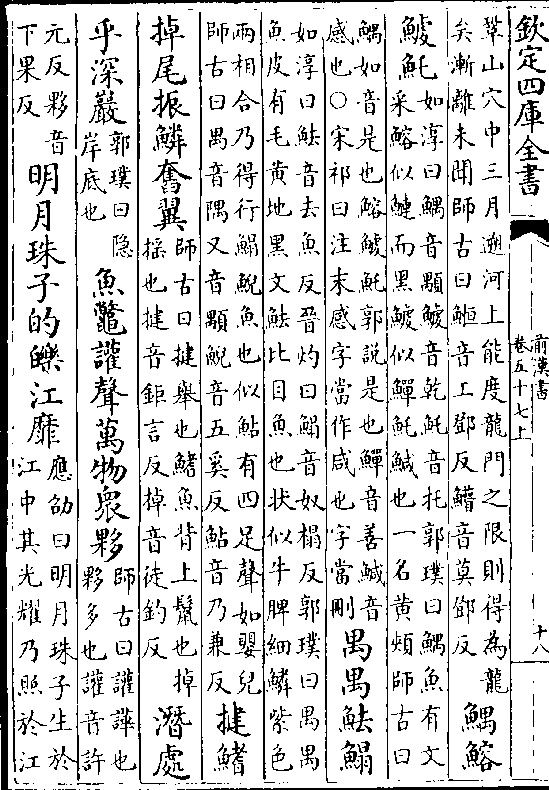 欽定四庫全書
前漢書
卷五十七上
十八
鞏山穴中三月遡河上能度龍門之限則得為龍
矣漸離未聞師古曰䱍音工鄧反䲛音莫鄧反
鰅鰫
鰬魠
如淳曰鰅音顒鰬音乾魠音托郭璞曰鰅魚有文
采鰫似鰱而黑鰬似鱓魠鱤也一名黄頰師古曰
鰅如音是也鰫鰬魠郭說是也鱓音善鱤音
感也○宋祁曰注末感字當作咸也字當刪
禺禺魼鰨
如淳曰魼音去魚反晉灼曰鰨音奴榻反郭璞曰禺禺
魚皮有毛黄地黑文魼比目魚也狀似牛脾細鱗紫色
兩相合乃得行鰨鯢魚也似鮎有四足聲如嬰兒
師古曰禺音隅又音顒鯢音五奚反鮎音乃兼反
揵鰭
掉尾振鱗奮翼
師古曰揵舉也鰭魚背上鬣也掉
揺也揵音鉅言反掉音徒釣反
潛處
乎深巖
郭璞曰隐
岸底也
魚鼈讙聲萬物衆夥
師古曰讙譁也
夥多也讙音許
元反夥音
下果反
明月珠子的皪江靡
應劭曰明月珠子生於
江中其光耀乃照於江